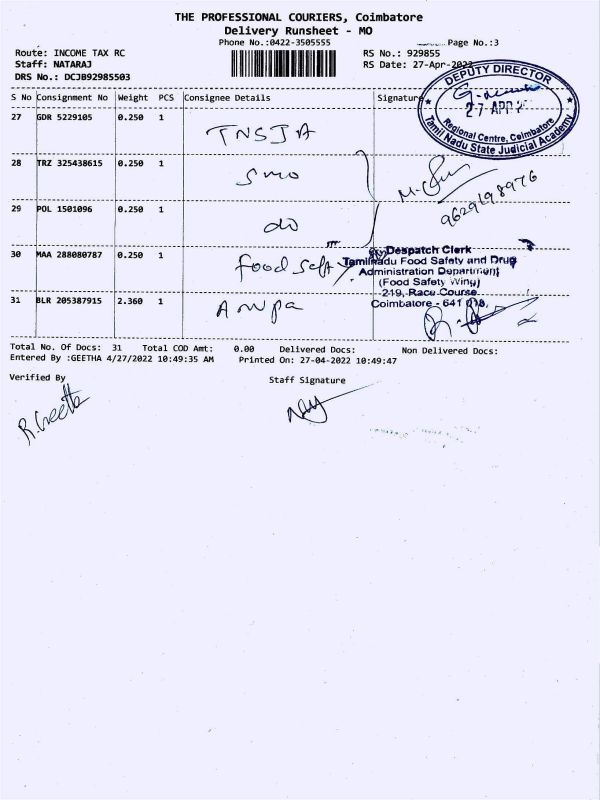 THE PROFESSIONAL COURIERS, Coimbatore
Delivery Runsheet - MO
Phone No.:0422-3505555
Page No.:3
Route: INCOME TAX RC
RS No.: 929855
Staff: NATARAJ
RS Date: 27-Apr-2022
DRS No.: DCJ892985503
DEPUTY DIRECTOR
27 APR
Regional Centre, Coimbatore
Tamil Nadu State Judicial Academy
S No Consignment No Weight PCS Consignee Details Signature
27 GDR 5229105 0.250 1 TNSJA
28 TRZ 325438615 0.250 1 smo
M.
9629198976
29 POL 1501096 0.250 1 do
30 MAA 288080787 0.250 1 food Seft
Despatch Clerk
Tamilnadu Food Safety and Drug
Administration Department
(Food Safety Wing)
219, Race Course
Coimbatore - 641 018.
31 BLR 205387915 2.360 1
Total No. Of Docs: 31 Total COD Amt: 0.00 Delivered Docs: Non Delivered Docs:
Entered By :GEETHA 4/27/2022 10:49:35 AM Printed On: 27-04-2022 10:49:47
Verified By
Staff Signature
R. Geetha